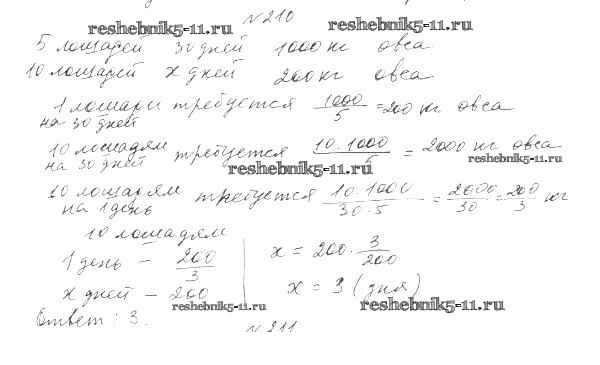 №210
reshebnik5-11.ru reshebnik5-11.ru
5 лошадей 30 дней 1000 кг овса
10 лошадей x дней 200 кг овса
1 лошади требуется 1000/5 = 200 кг овса
на 30 дней
10 лошадям требуется 10·1000/5 = 2000 кг овса
на 30 дней
reshebnik5-11.ru reshebnik5-11.ru
10 лошадям требуется 10·1000/30·5 = 2000/30 = 200/3 кг
на 1 день
10 лошадям
1 день – 200/3
x дней – 200
x = 200·3/200
x = 3 (дня)
reshebnik5-11.ru reshebnik5-11.ru
Ответ: 3.
№211